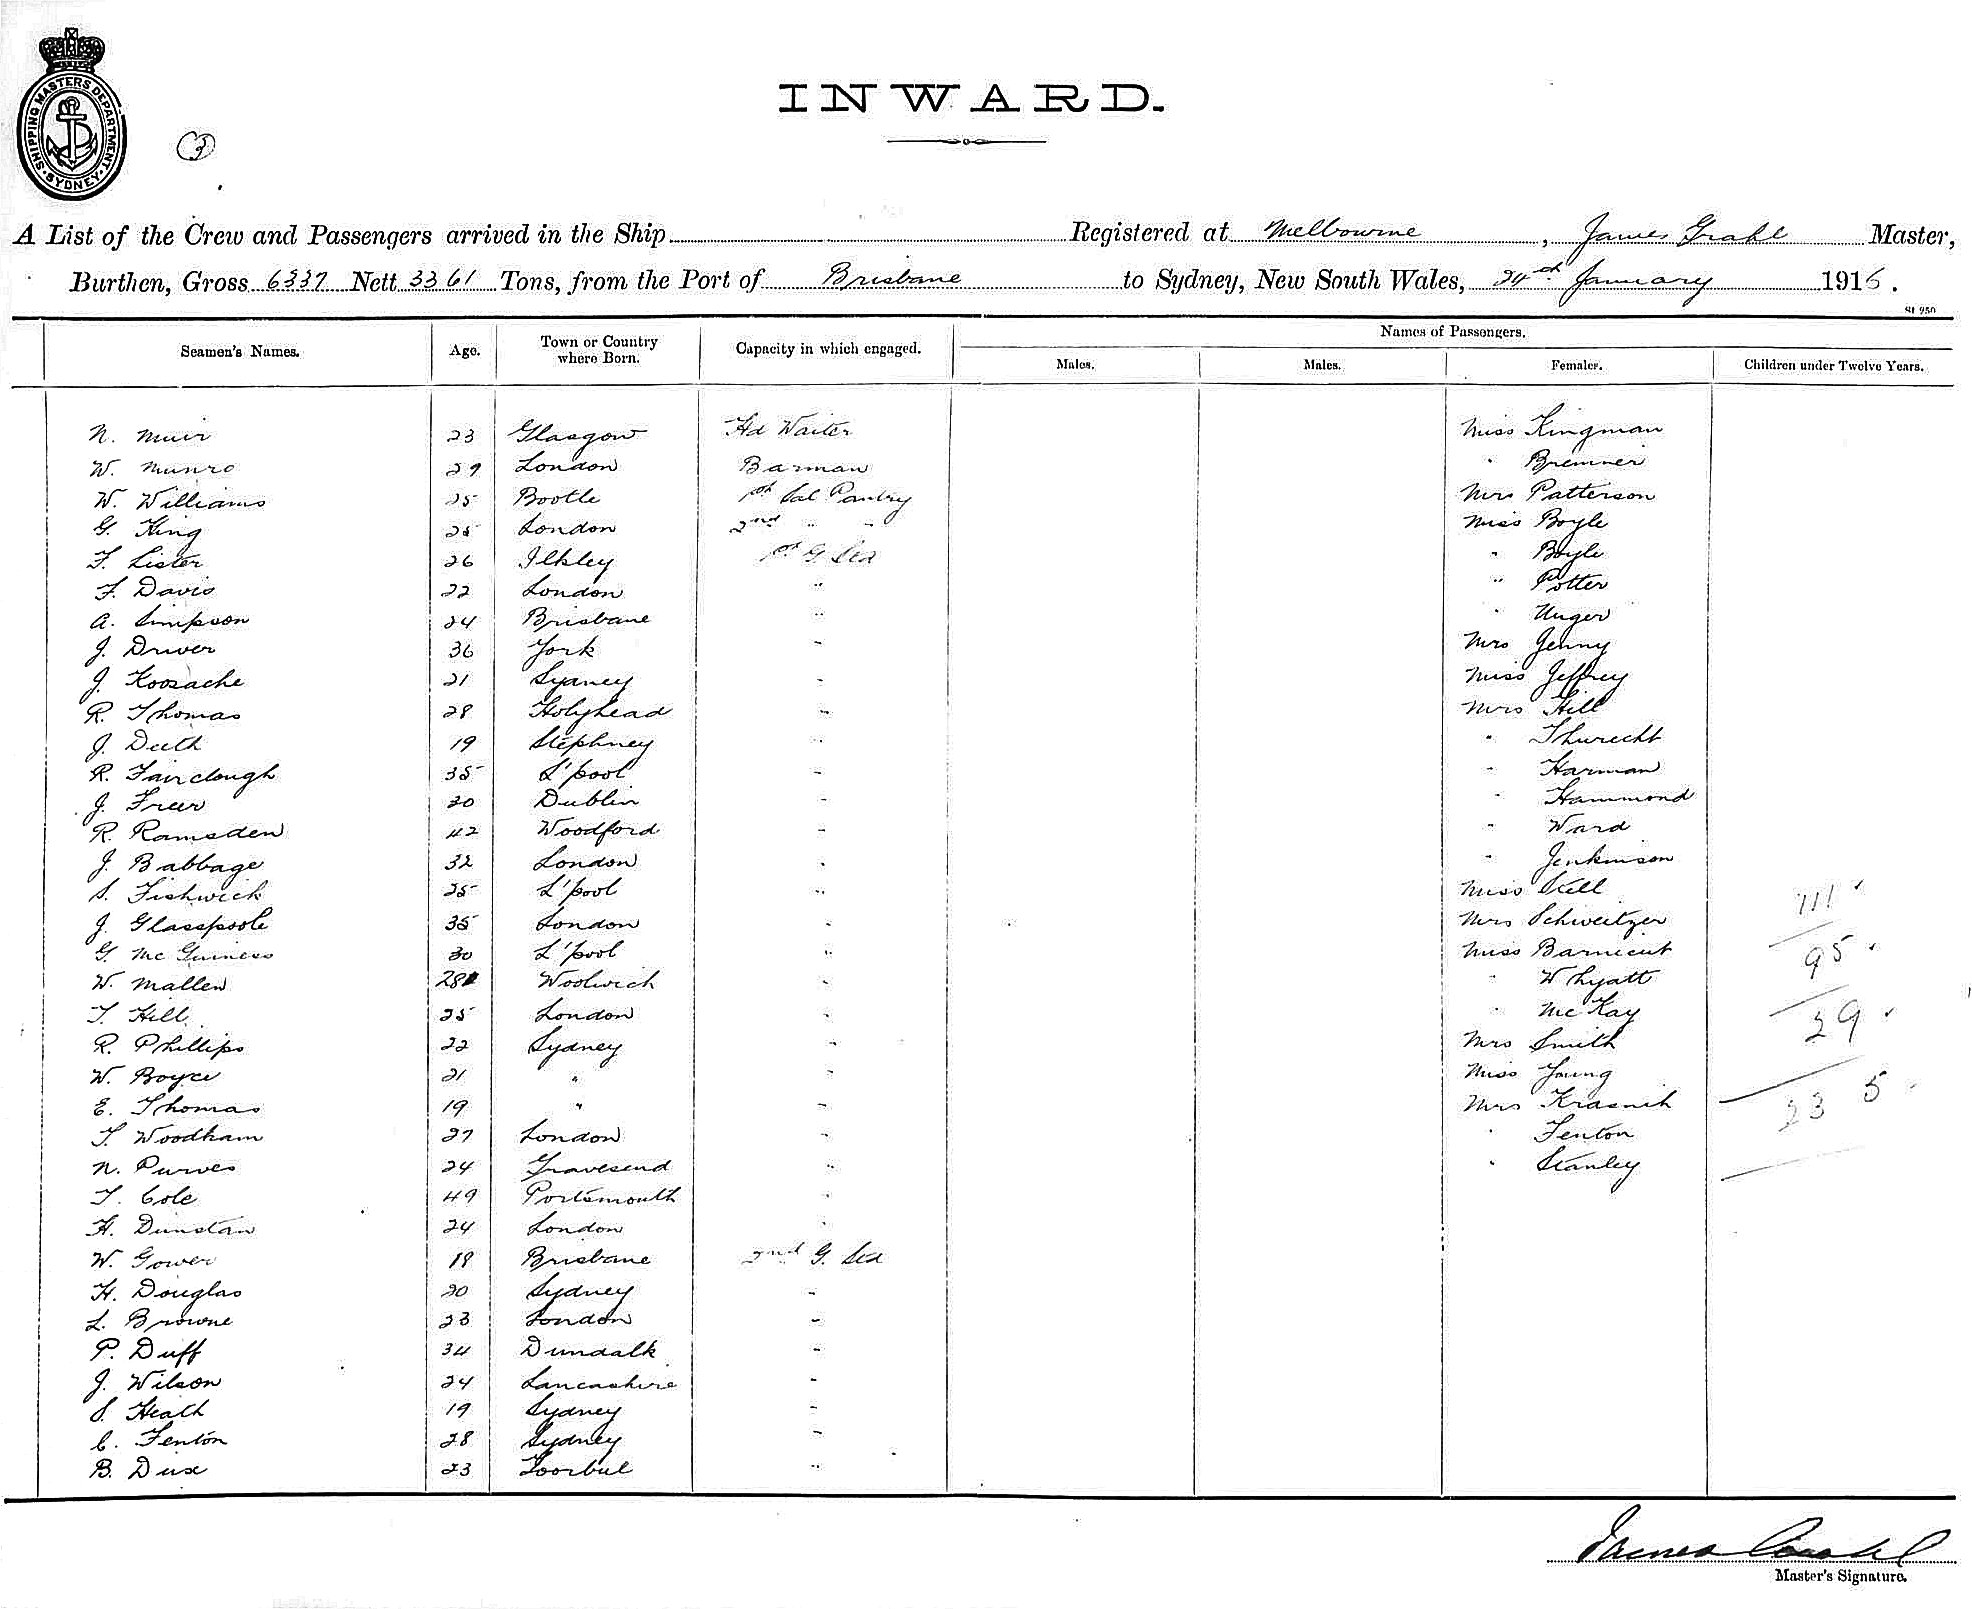 SHIPPING MASTERS DEPARTMENT. SYDNEY.
3
INWARD.
A List of the Crew and Passengers arrived in the Ship Registered at Melbourne, James Grahl Master,
Burthen, Gross 6337 Nett 3361 Tons, from the Port of Brisbane to Sydney, New South Wales, 24th January 1916.
St 950
Names of Passengers.
Seamen's Names. Age. Town or Country where Born. Capacity in which engaged. Males. Males. Females. Children under Twelve Years.
N. Muir 23 Glasgow Hd Waiter Miss Kingman
W. Munro 29 London Barman " Bremner
W. Williams 25 Bootle 1st Sal Pantry Mrs Patterson
G. King 25 London 2nd " " Miss Boyle
F. Lister 26 Ilkley 1st G. Std " Boyle
F. Davis 22 London " " Potter
A. Simpson 24 Brisbane " " Unger
J. Driver 36 York " Mrs Jenny
J. Koosache 21 Sydney " Miss Jeffrey
R. Thomas 28 Holyhead " Mrs Hill
J. Duth 19 Stephney " " Thurecht
R. Fairclough 35 L'pool " " Harman
J. Freer 30 Dublin " " Hammond
R. Ramsden 42 Woodford " " Ward
J. Babbage 32 London " " Jenkinson
S. Fishwick 25 L'pool " Miss Still
J. Glasspoole 35 London " Mrs Schweitzer 111
G. McGuiness 30 L'pool " Miss Barnicut 95
W. Mallen 28 Woolwich " " Whyatt
T. Hill 25 London " " McKay 29
R. Phillips 22 Sydney " Mrs Smith
W. Boyce 21 " " Miss Young
E. Thomas 19 " " Mrs Krasnik 235
T. Woodham 27 London " " Fenton
N. Purves 24 Gravesend " " Stanley
T. Cole 49 Portsmouth "
H. Dunstan 24 London "
W. Gower 18 Brisbane 2nd G. Std
H. Douglas 20 Sydney "
L. Browne 23 London "
P. Duff 34 Dundalk "
J. Wilson 24 Lancashire "
S. Heath 19 Sydney "
C. Fenton 28 Sydney "
B. Dux 23 Toorbul "
James Grahl
Master's Signature.